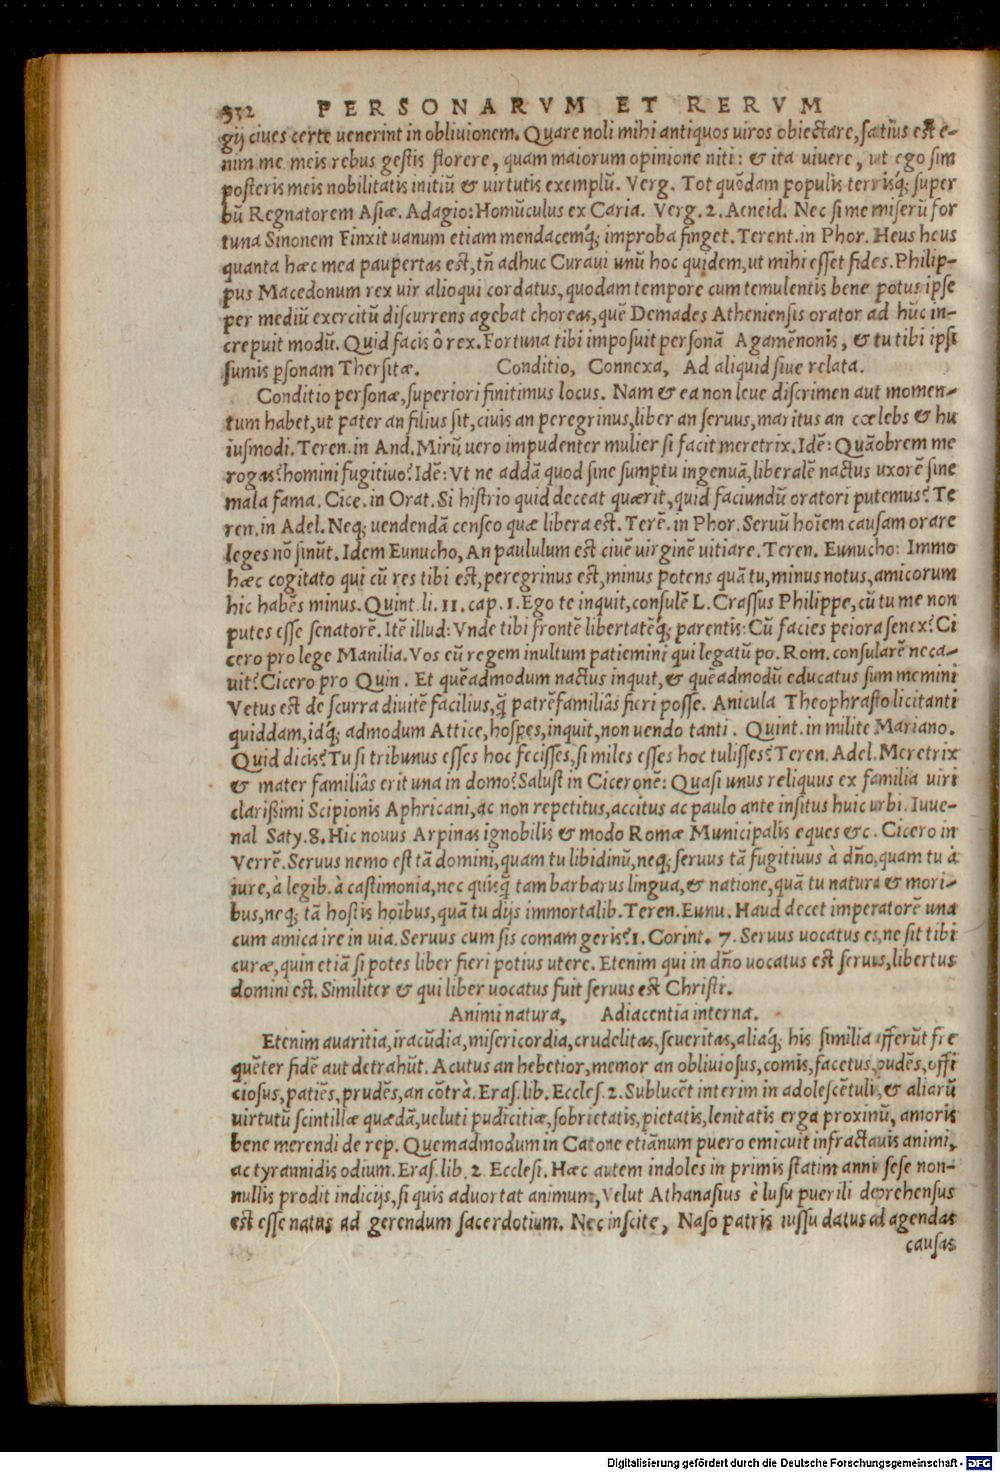 532 PERSONARVM ET RERVM
gij ciues certe uenerint in obliuionem. Quare noli mihi antiquos uiros obiectare, satius est e-
nim me meis rebus gestis florere, quam maiorum opinione niti: & ita uiuere, ut ego sim
posteris meis nobilitatis initiũ & uirtutis exemplũ. Verg. Tot quõdam populis terrisq; super
bũ Regnatorem Asiæ. Adagio: Homũculus ex Caria. Verg. 2. Aeneid. Nec si me miserũ for
tuna Sinonem Finxit uanum etiam mendacemq́; improba finget. Terent. in Phor. Heus heus
quanta hæc mea paupertas est, tñ adhuc Curaui unũ hoc quidem, ut mihi esset fides. Philip-
pus Macedonum rex uir alioqui cordatus, quodam tempore cum temulentis bene potus ipse
per mediũ exercitũ discurrens agebat choreas, quẽ Demades Atheniensis orator ad hũc in-
crepuit modũ. Quid facis ô rex. Fortuna tibi imposuit personã Agamẽnonis, & tu tibi ipsi
sumis p̱sonam Thersitæ. Conditio, Connexa, Ad aliquid siue relata.
Conditio personæ, superiori finitimus locus. Nam & ea non leue discrimen aut momen-
tum habet, ut pater an filius sit, ciuis an peregrinus, liber an seruus, maritus an cœlebs & hu
iusmodi. Teren. in And. Mirũ uero impudenter mulier si facit meretrix. Idẽ: Quãobrem me
rogas? homini fugitiuo? Idẽ: Vt ne addã quod sine sumptu ingenuã, liberalẽ nactus uxorẽ sine
mala fama. Cice. in Orat. Si histrio quid deceat quærit, quid faciundũ oratori putemus? Te
ren. in Adel. Neq; uendendã censeo quæ libera est. Terẽ. in Phor. Seruũ hoĩem causam orare
leges nõ sinũt. Idem Eunucho, An paululum est ciuẽ uirginẽ uitiare. Teren. Eunucho: Immo
hæc cogitato qui cũ res tibi est, peregrinus est, minus potens quã tu, minus notus, amicorum
hic habẽs minus. Quint. li. 11. cap. 1. Ego te inquit, consulẽ L. Crassus Philippe, cũ tu me non
putes esse senatorẽ. Itẽ illud: Vnde tibi frontẽ libertatẽq́; parentis: Cũ facies peiora senex? Ci
cero pro lege Manilia. Vos eũ regem inultum patiemini qui legatũ po. Rom. consularẽ neca-
uit? Cicero pro Quin. Et quẽadmodum nactus inquit, & quẽadmodũ educatus sum memini
Vetus est de scurra diuitẽ facilius, q̃ patrẽfamiliâs fieri posse. Anicula Theophrasto licitanti
quiddam, idq́; admodum Attice, hospes, inquit, non uendo tanti. Quint. in milite Mariano.
Quid dicis? Tu si tribunus esses hoc fecisses, si miles esses hoc tulisses? Teren. Adel. Meretrix
& mater familiâs erit una in domo? Salust in Ciceronẽ: Quasi unus reliquus ex familia uiri
clarißimi Scipionis Aphricani, ac non repetitus, accitus ac paulo ante insitus huic urbi. Iuue-
nal Saty. 8. Hic nouus Arpinas ignobilis & modo Romæ Municipalis eques &c. Cicero in
Verrẽ. Seruus nemo est tã domini, quam tu libidinũ, neq; seruus tã fugitiuus à dño, quam tu à
iure, à legib. à castimonia, nec quisq̃ tam barbarus lingua, & natione, quã tu natura & mori-
bus, neq; tã hostis hoĩbus, quã tu dijs immortalib. Teren. Eunu. Haud decet imperatorẽ una
cum amica ire in uia. Seruus cum sis comam geris? 1. Corint. 7. Seruus uocatus es, ne sit tibi
curæ, quin etiã si potes liber fieri potius utere. Etenim qui in dño uocatus est seruus, libertus
domini est. Similiter & qui liber uocatus fuit seruus est Christi.
Animi natura, Adiacentia interna.
Etenim auaritia, iracũdia, misericordia, crudelitas, seueritas, aliaq́; his similia afferũt fre
quẽter fidẽ aut detrahũt. Acutus an hebetior, memor an obliuiosus, comis, facetus, pudẽs, offi
ciosus, patiẽs, prudẽs, an cõtrà. Eras. lib. Eccles. 2. Sublucẽt interim in adolescẽtulis, & aliarũ
uirtutũ scintillæ quædã, ueluti pudicitiæ, sobrietatis, pietatis, lenitatis erga proximũ, amoris
bene merendi de rep. Quemadmodum in Catone etiãnum puero emicuit infractauis animi,
ac tyrannidis odium. Eras. lib. 2. Ecclesi. Hæc autem indoles in primis statim annis sese non-
nullis prodit indicijs, si quis aduortat animum, Velut Athanasius è lusu puerili deprehensus
est esse natus ad gerendum sacerdotium. Nec inscite, Naso patris iussu datus ad agendas
causas
Digitalisierung gefördert durch die Deutsche Forschungsgemeinschaft - DFG